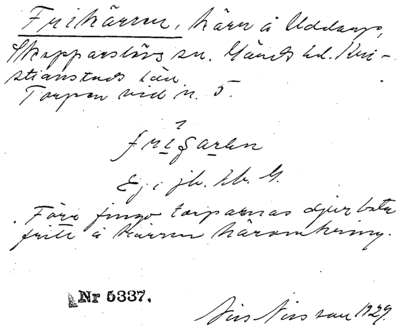 Frikärren, kärr å Uddarp,
Skepparslövs sn. Gärds hd. Kri-
stianstads län
Torpen vid n. 5.
Ej i jb. kb. G.
Förr fingo torparnas djur beta
fritt å kärren häromkring.
Nr 5337.
1929.